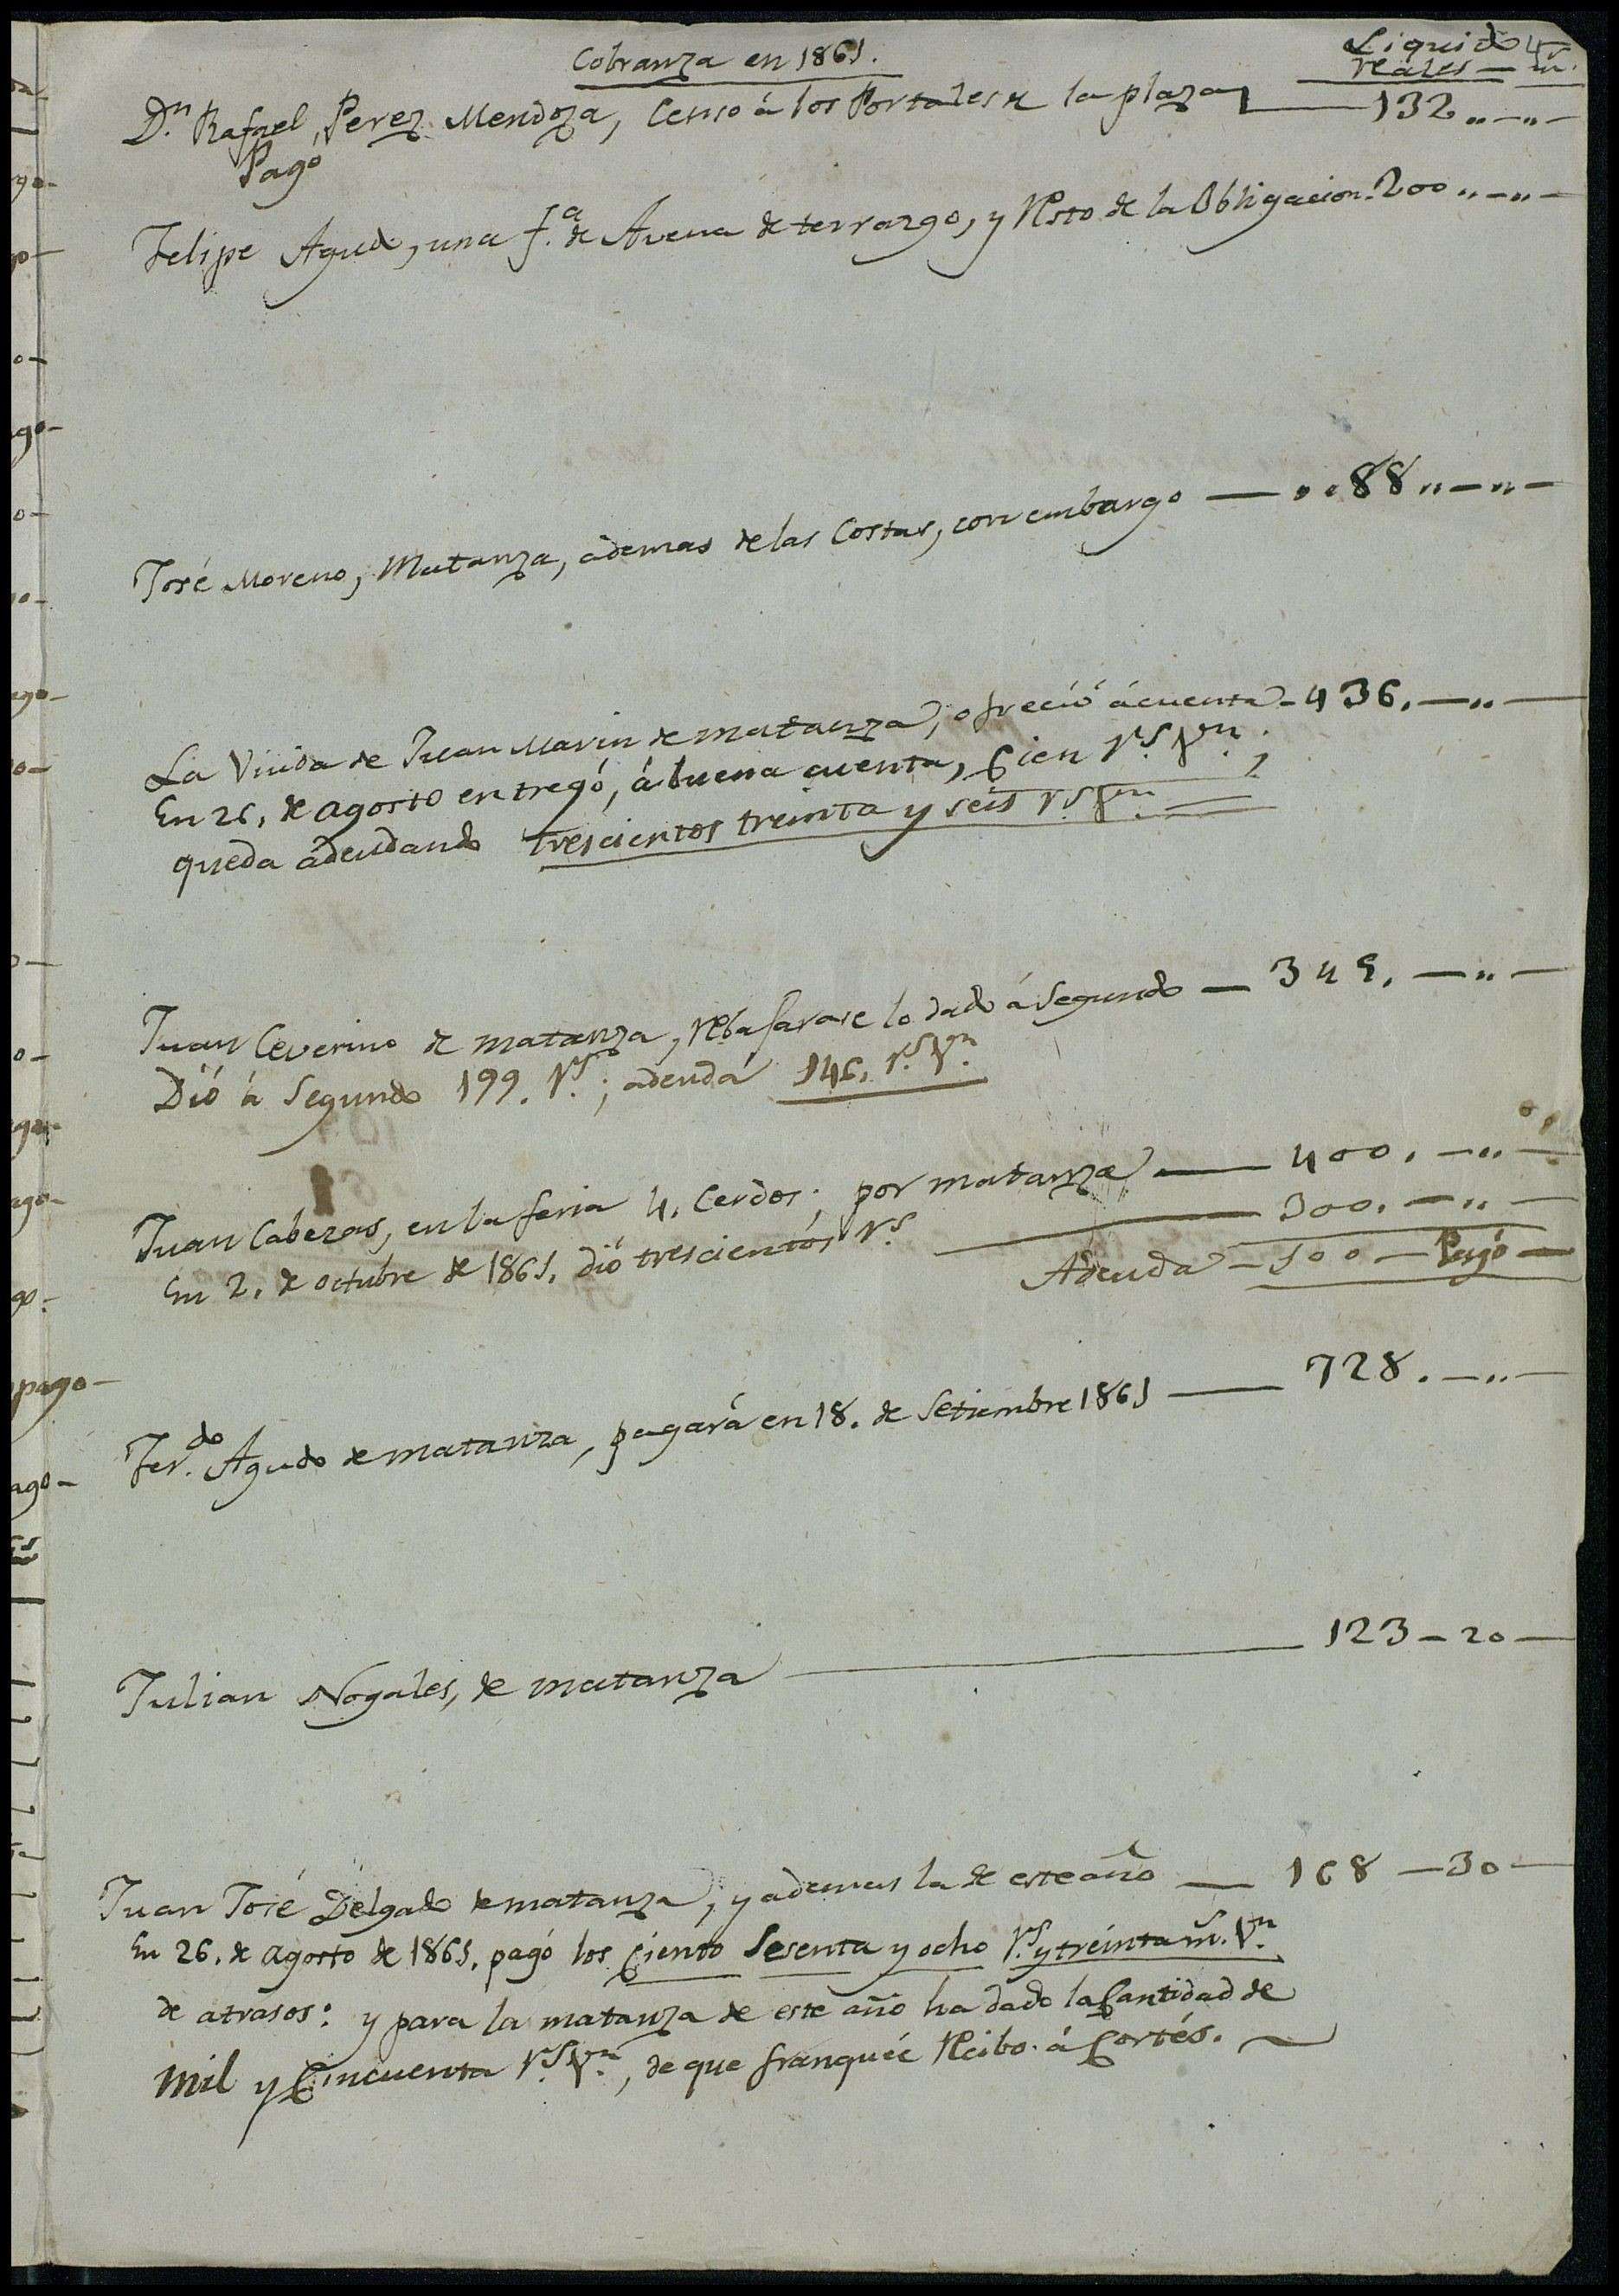 Cobranza en 1861.
Liquido
reales — m.
D.n Rafael Perez Mendoza, Censo á los Portales de la plaza — 132 „ — „ —
Pagó
Felipe Agudo, una f.a de Avena de terrazgo, y Resto de la Obligacion. 200 „ — „ —
José Moreno, Matanza, ademas de las Costas, con embargo — „ 88 „ — „ —
La Viuda de Juan Marin de matanza, ofreció á cuenta - 436. — „ —
En 26, de agosto entregó, á buena cuenta, Cien r.s v.n,
queda adeudando trescientos treinta y seis r.s v.n
Juan Ceverino de matanza, Rebajarase lo dado á Segundo — 345. — „ —
Dió á Segundo 199. r.s; adeuda 146. r.s v.n
Juan Cabezas, en la feria 4. Cerdos; por matanza — 400. — „ —
En 2. de octubre de 1861. dió trescientos r.s — 300. — „ —
Adeuda - 100 — Pagó —
Fer.do Agudo de matanza, pagará en 18. de Setiembre 1861 — 728. — „ —
Julian Nogales, de matanza — 123 — 20 —
Juan José Delgado de matanza, y ademas la de este año — 168 — 30 —
En 26. de agosto de 1861. pagó los Ciento Sesenta y ocho r.s y treinta m.s v.n
de atrasos: y para la matanza de este año ha dado la Cantidad de
mil y Cincuenta r.s v.n, de que franqueé Recibo á Cortés.